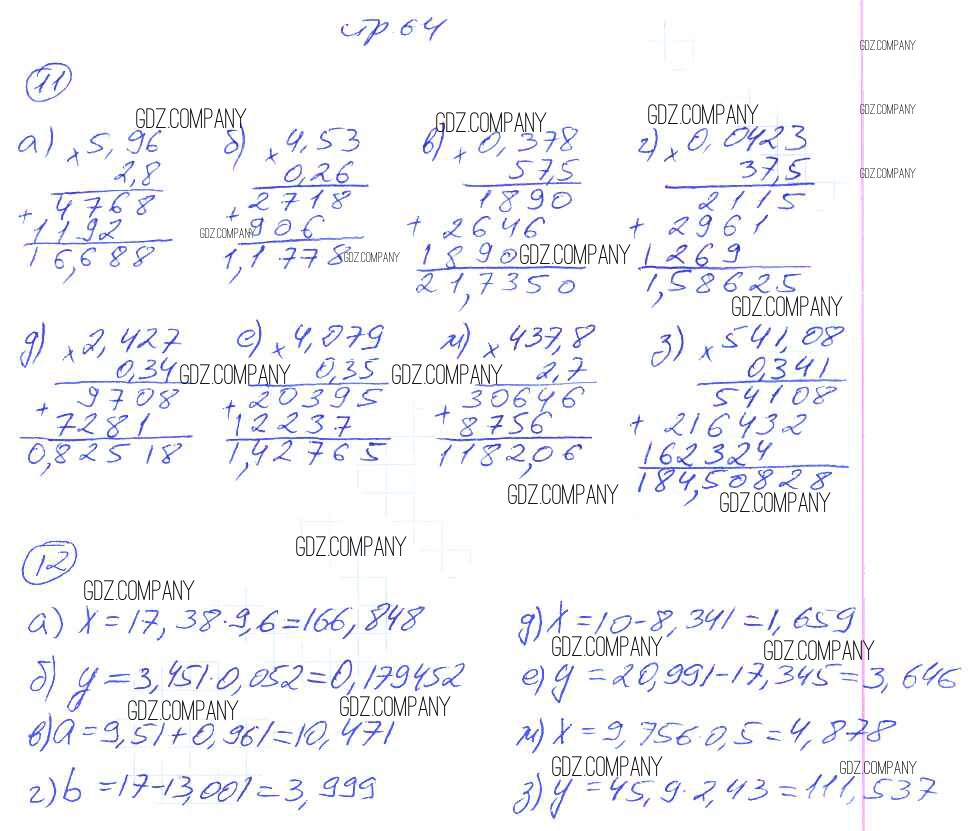 стр. 64
GDZ.COMPANY
11
GDZ.COMPANY GDZ.COMPANY GDZ.COMPANY GDZ.COMPANY
а) × 5,96 б) × 4,53 в) × 0,378 г) × 0,0423
2,8 0,26 57,5 37,5 GDZ.COMPANY
+ 4768 + 2718 1890 2115
1192 906 + 2646 + 2961
GDZ.COMPANY
16,688 1,1778 1890 1269
GDZ.COMPANY GDZ.COMPANY
21,7350 1,58625
GDZ.COMPANY
д) × 2,427 е) × 4,079 м) × 437,8 з) × 541,08
0,34 0,35 2,7 0,341
GDZ.COMPANY GDZ.COMPANY
+ 9708 + 20395 + 30646 54108
7281 12237 8756 + 216432
0,82518 1,42765 1182,06 162324
184,50828
GDZ.COMPANY GDZ.COMPANY
GDZ.COMPANY
12
GDZ.COMPANY
а) x = 17,38·9,6=166,848
д) x = 10-8,341=1,659
GDZ.COMPANY GDZ.COMPANY
б) y = 3,451·0,052=0,179452
е) y = 20,991-17,345=3,646
GDZ.COMPANY GDZ.COMPANY
в) a = 9,51+0,961=10,471
м) x = 9,756·0,5=4,878
GDZ.COMPANY GDZ.COMPANY
г) b = 17-13,001=3,999
з) y = 45,9·2,43=111,537